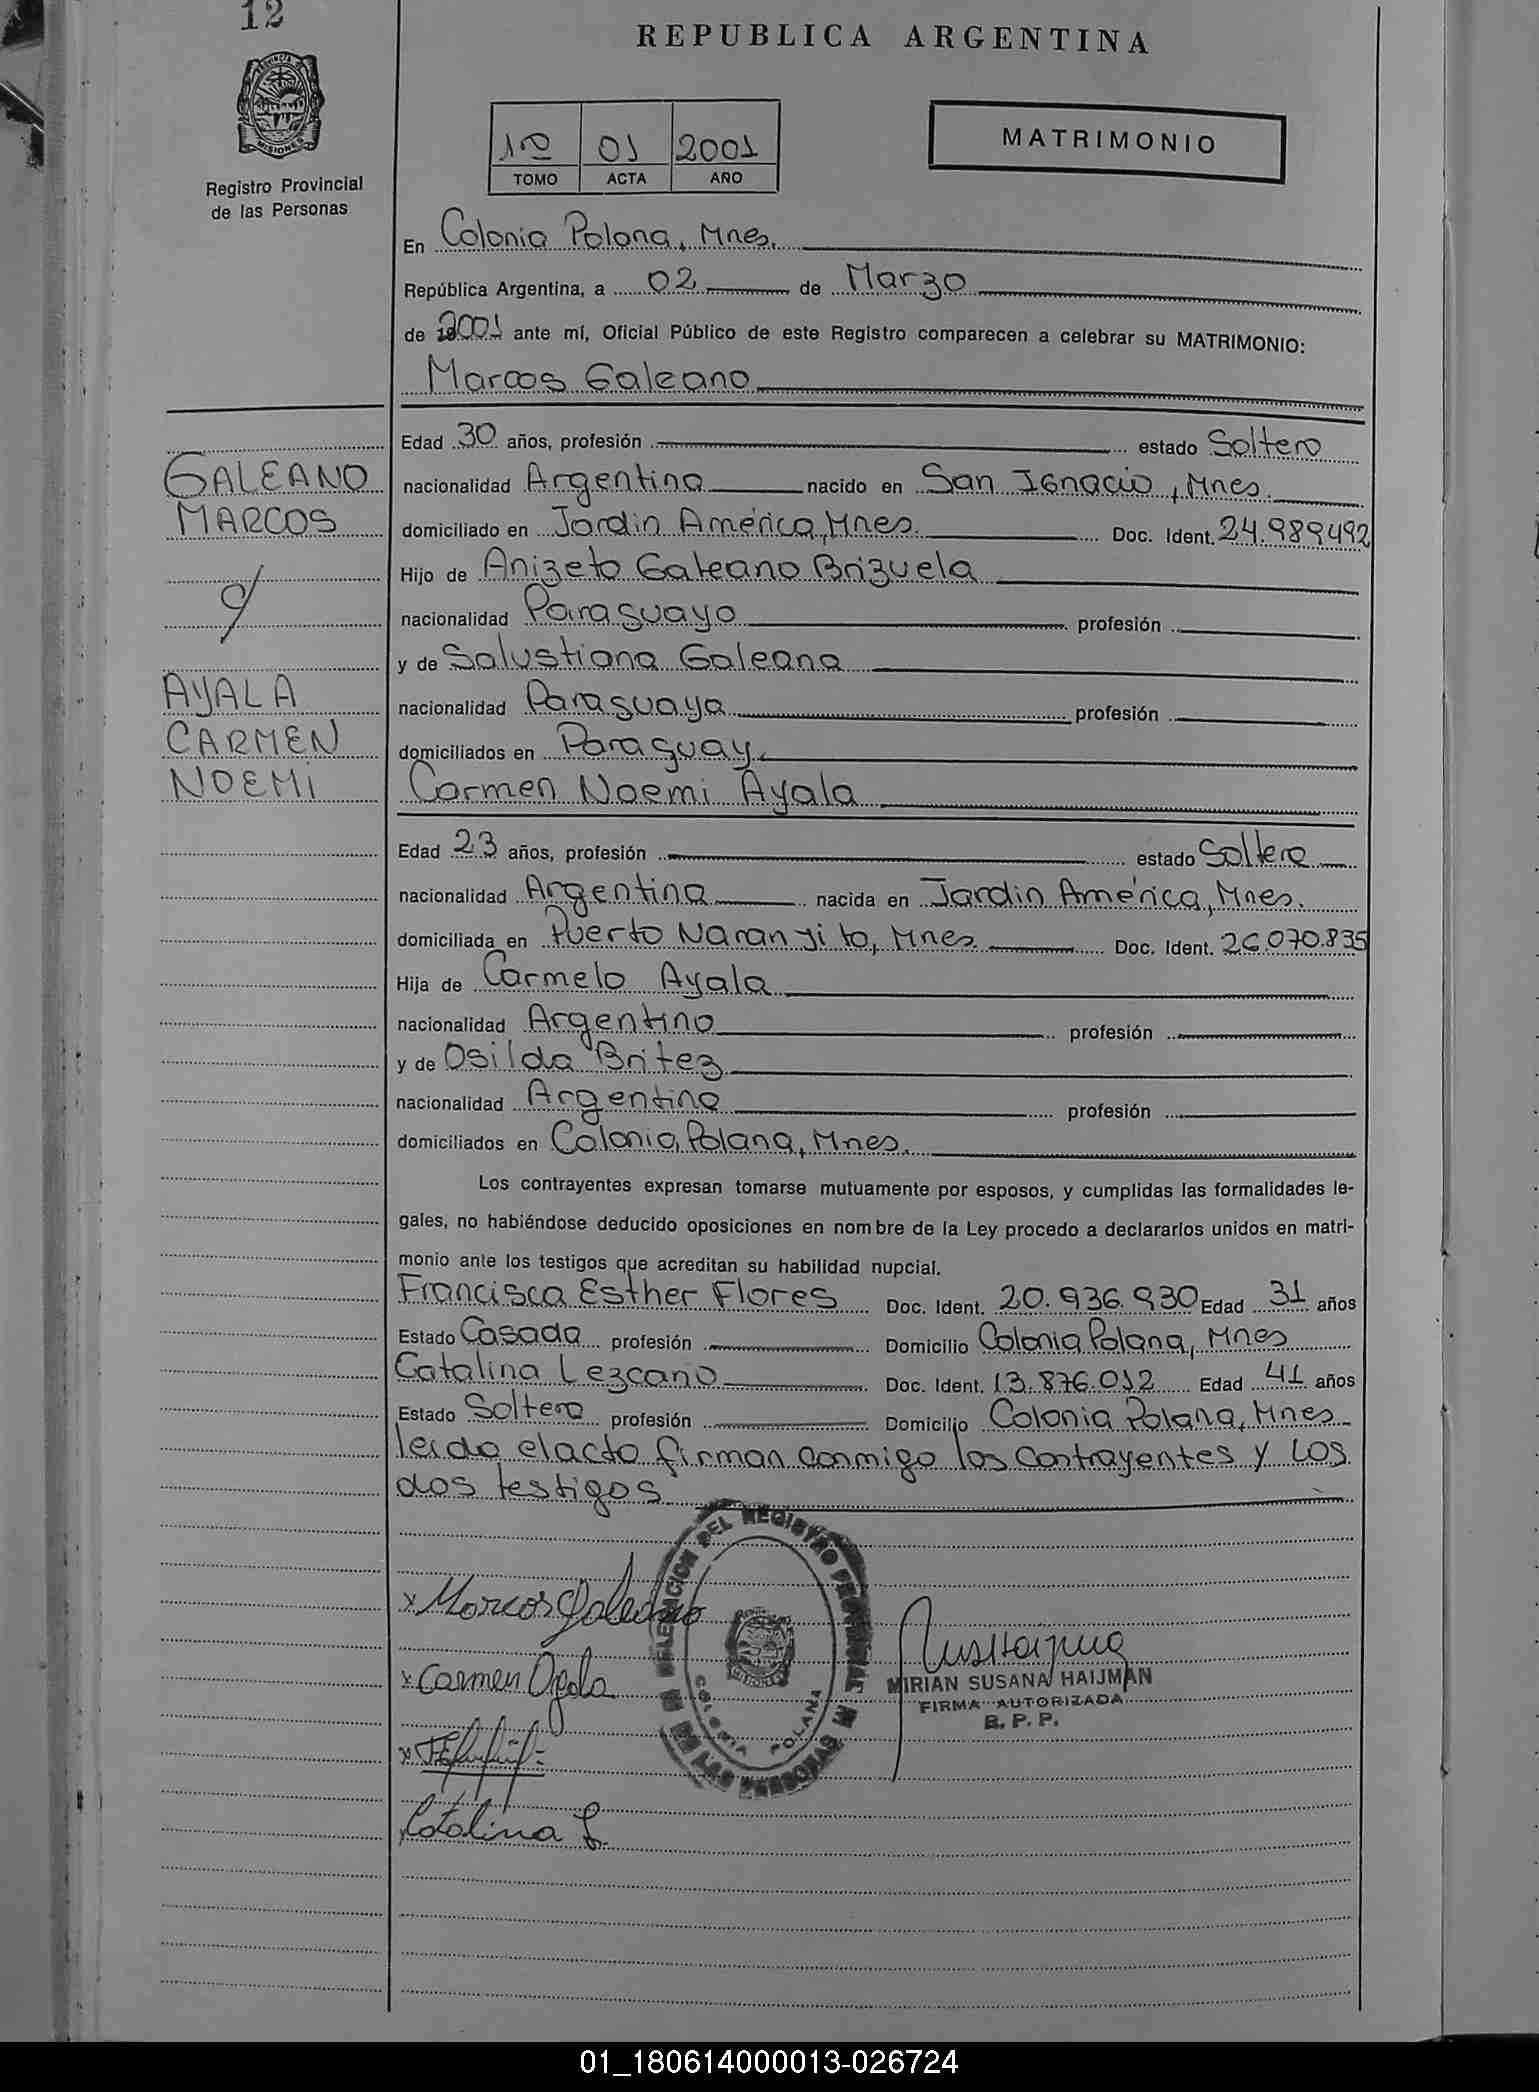 12
REPUBLICA ARGENTINA
MISIONES
Registro Provincial
de las Personas
1º 01 2001
TOMO ACTA AÑO
MATRIMONIO
En Colonia Polana, Mnes.
República Argentina, a 02 de Marzo
de 2001 ante mí, Oficial Público de este Registro comparecen a celebrar su MATRIMONIO:
Marcos Galeano
Edad 30 años, profesión estado Soltero
GALEANO
nacionalidad Argentina nacido en San Ignacio, Mnes.
MARCOS
domiciliado en Jardin América, Mnes. Doc. Ident. 24.989492
Hijo de Anizeto Galeano Brizuela
nacionalidad Paraguayo profesión
y de Salustiana Galeana
AYALA
nacionalidad Paraguaya profesión
CARMEN
domiciliados en Paraguay
NOEMI
Carmen Noemi Ayala
Edad 23 años, profesión estado Soltera
nacionalidad Argentina nacida en Jardin América, Mnes.
domiciliada en Puerto Naranjito, Mnes. Doc. Ident. 26.070.835
Hija de Carmelo Ayala
nacionalidad Argentino profesión
y de Osilda Britez
nacionalidad Argentina profesión
domiciliados en Colonia Polana, Mnes.
Los contrayentes expresan tomarse mutuamente por esposos, y cumplidas las formalidades le-
gales, no habiéndose deducido oposiciones en nombre de la Ley procedo a declararlos unidos en matri-
monio ante los testigos que acreditan su habilidad nupcial.
Francisca Esther Flores Doc. Ident. 20.936.930 Edad 31 años
Estado Casada profesión Domicilio Colonia Polana, Mnes
Catalina Lezcano Doc. Ident. 13.876.012 Edad 41 años
Estado Soltera profesión Domicilio Colonia Polana, Mnes
leido el acto firman conmigo los contrayentes y los
dos testigos
DELEGACION DEL REGISTRO PROVINCIAL DE LAS PERSONAS
MISIONES
COLONIA POLANA
x Marcos Galeano
x Carmen Ayala
MIRIAN SUSANA HAIJMAN
FIRMA AUTORIZADA
R. P. P.
Catalina L.
01_180614000013-026724